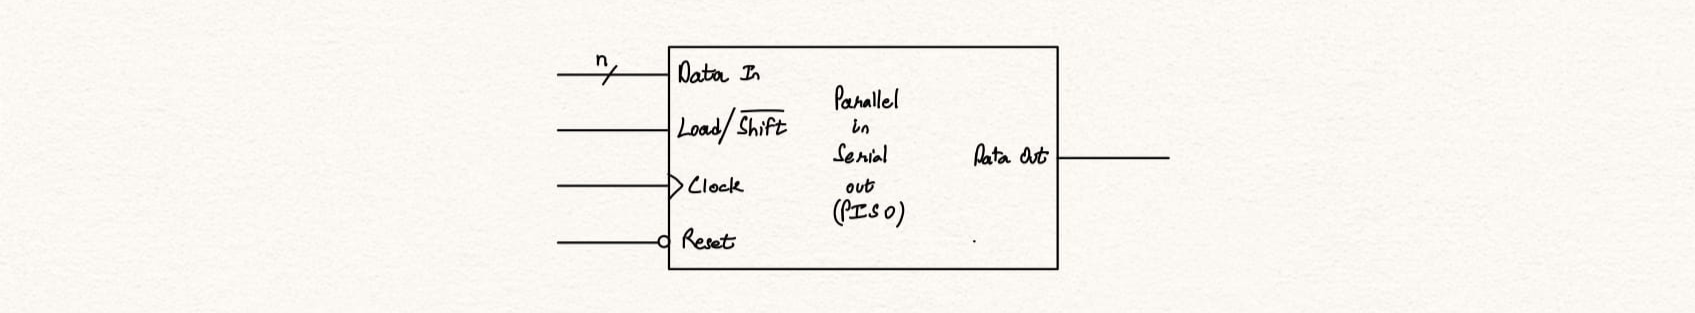 n
Data In
Load/S̅h̅i̅f̅t̅
Clock
Reset
Parallel
in
Serial
out
(PISO)
Data Out